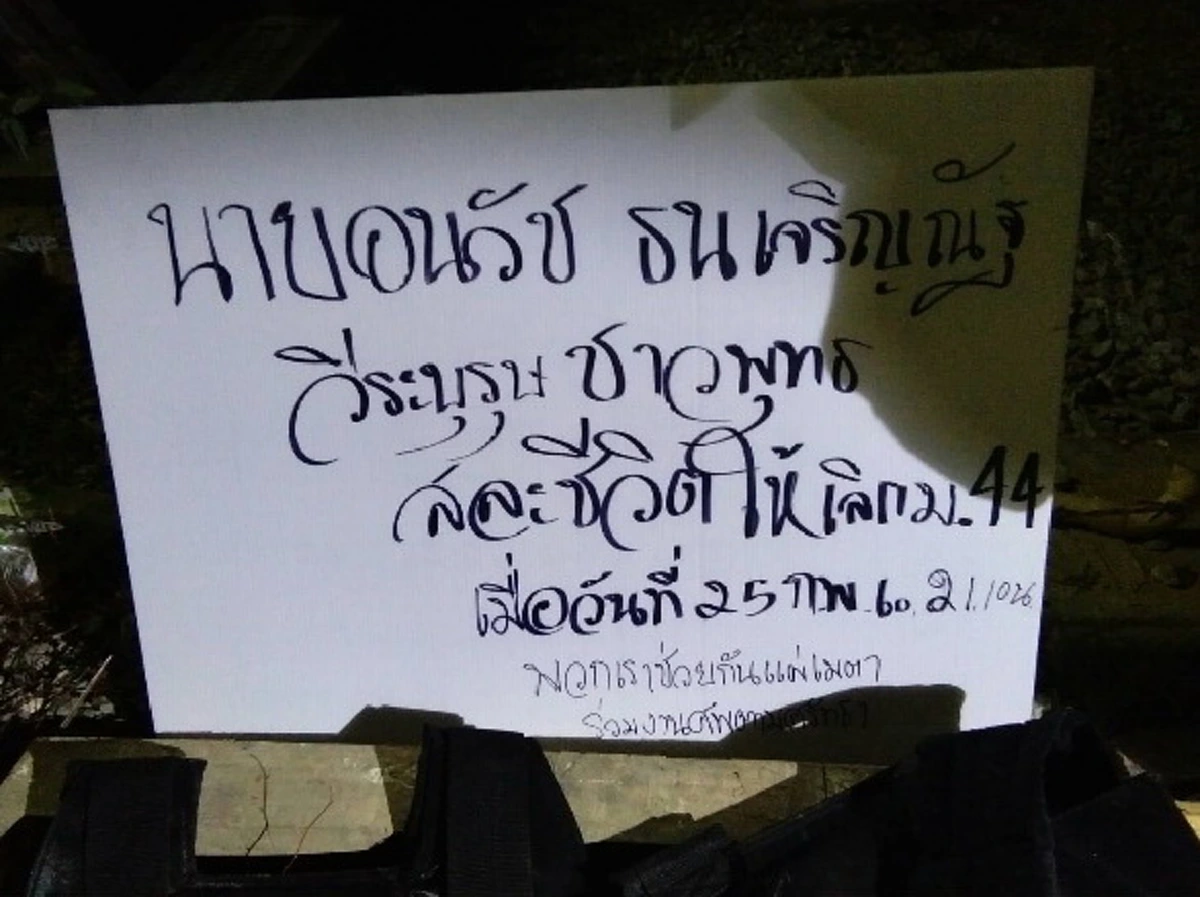 นายอนวัช ธนเจริญณัฐ
วีระบุรุษ ชาวพุทธ
สละชีวิตให้เลิก ม.44
เมื่อวันที่ 25 กพ.60. 21.10น.
พวกเราช่วยกันแผ่เมตา
ร่วมงานศพตามศรัทธา